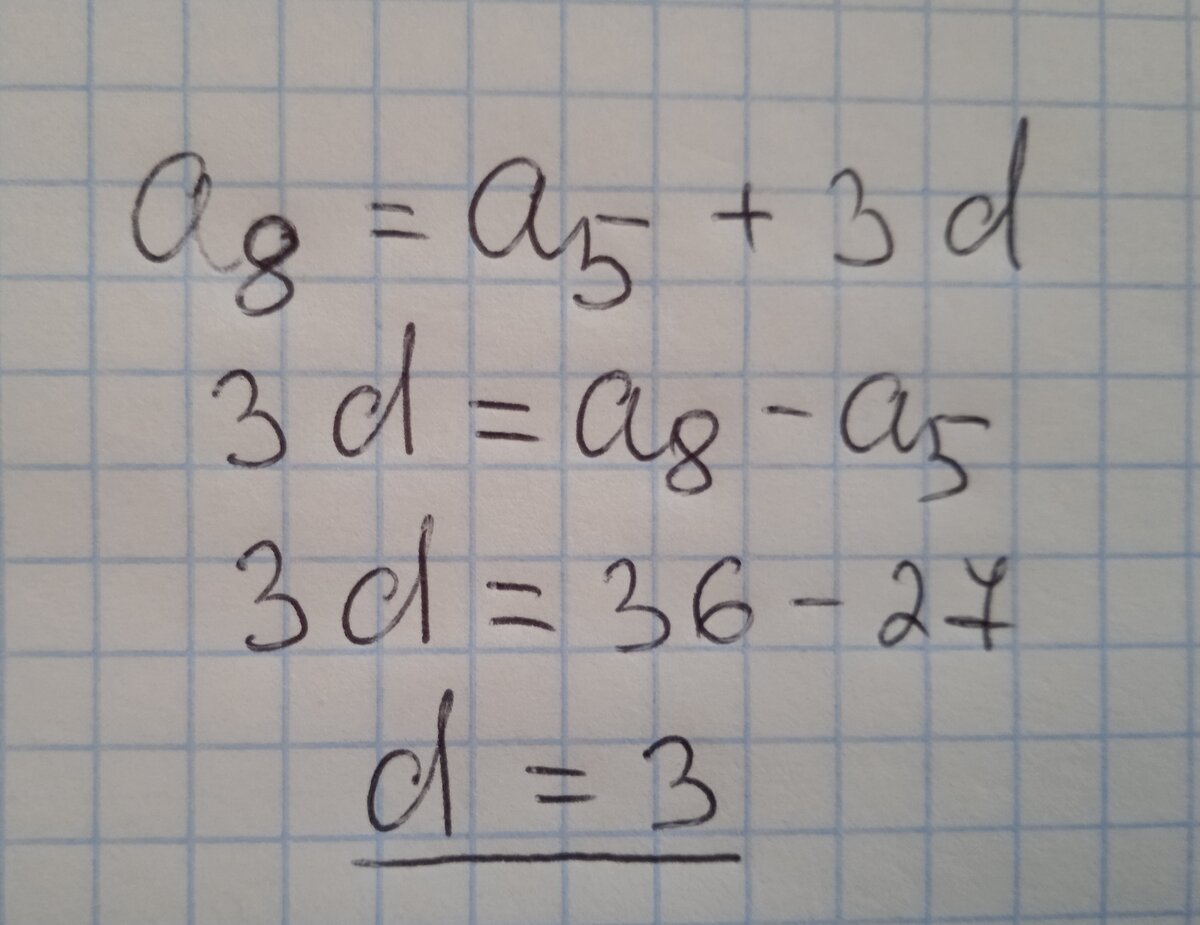 a₈ = a₅ + 3d
3d = a₈ - a₅
3d = 36 - 27
d = 3